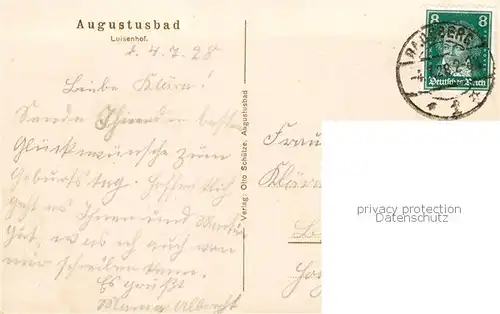 Augustusbad
Luisenhof.
d. 4.7.28
Liebe Klära!
Sende Ihnen die besten
Glückwünsche zum
Geburtstag. Hoffentlich
geht es Ihnen und
gut, was ich auch von
mir schreiben kann.
Es grüßt
Albrecht
Verlag: Otto Schütze, Augustusbad
8 8
Deutsches Reich
RADEBERG
Frau
Klära
privacy protection
Datenschutz